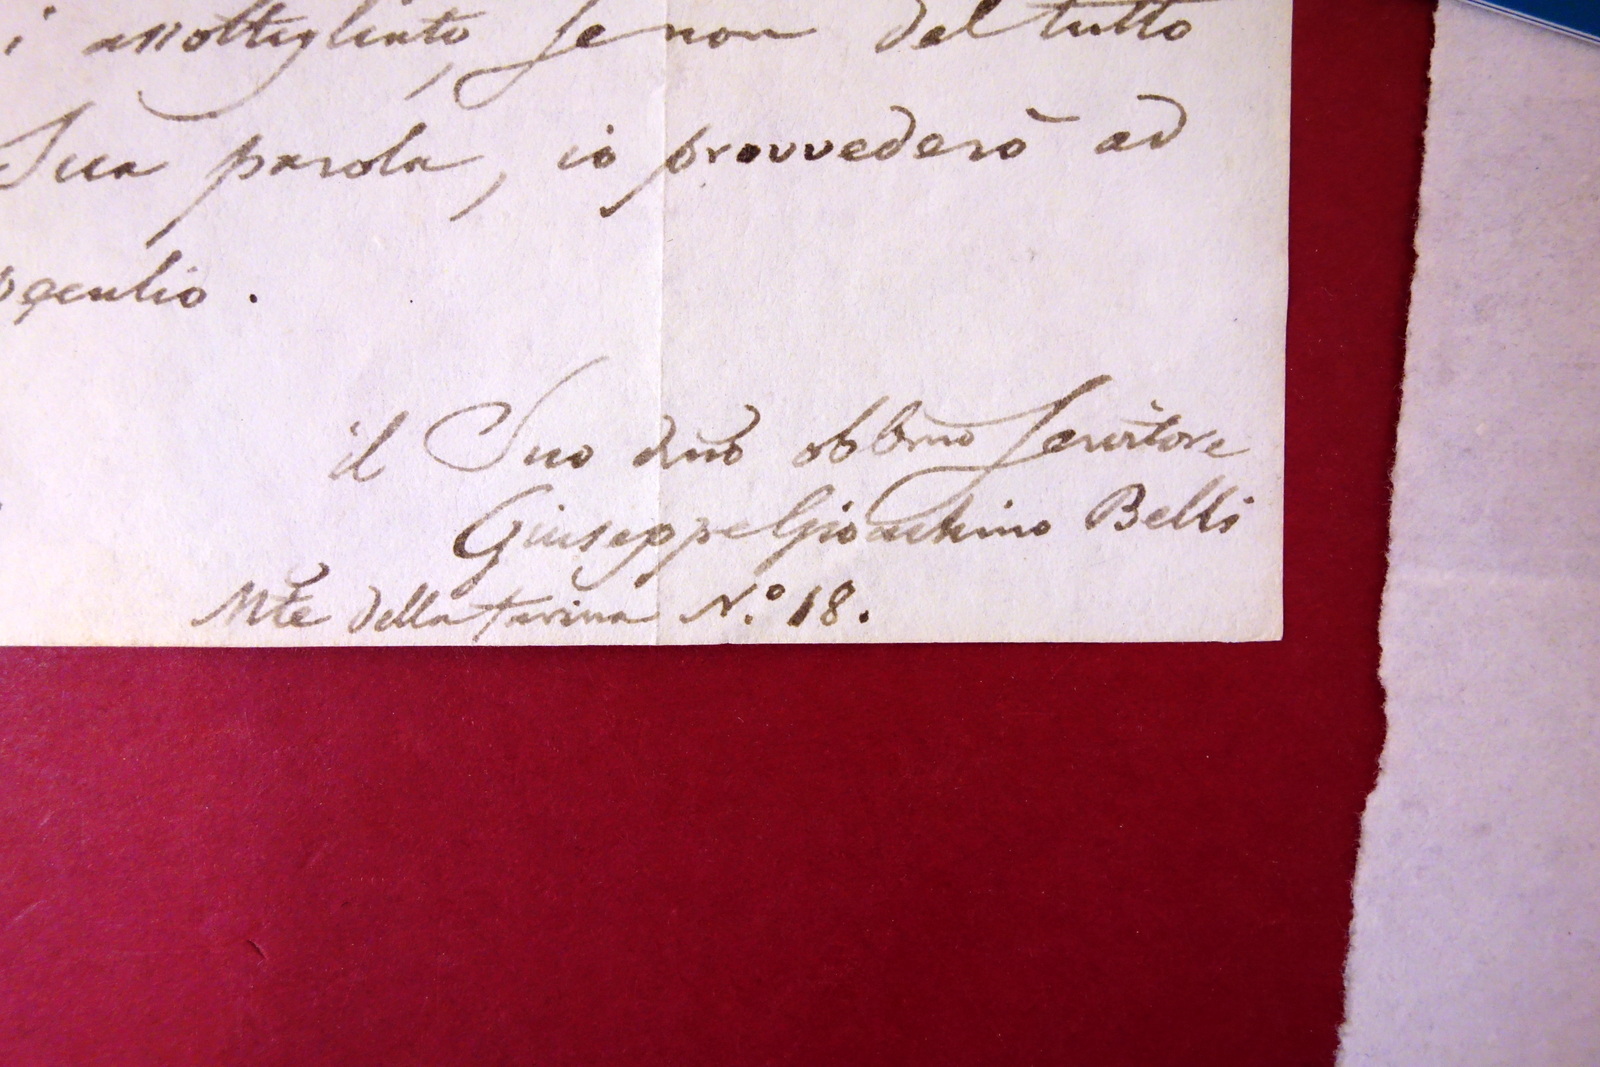 i assottigliato, se non del tutto
Sua parola, io provvederò ad
il Suo dmo obbmo servitore
Giuseppe Gioachino Belli
Mte della Farina N.º 18.